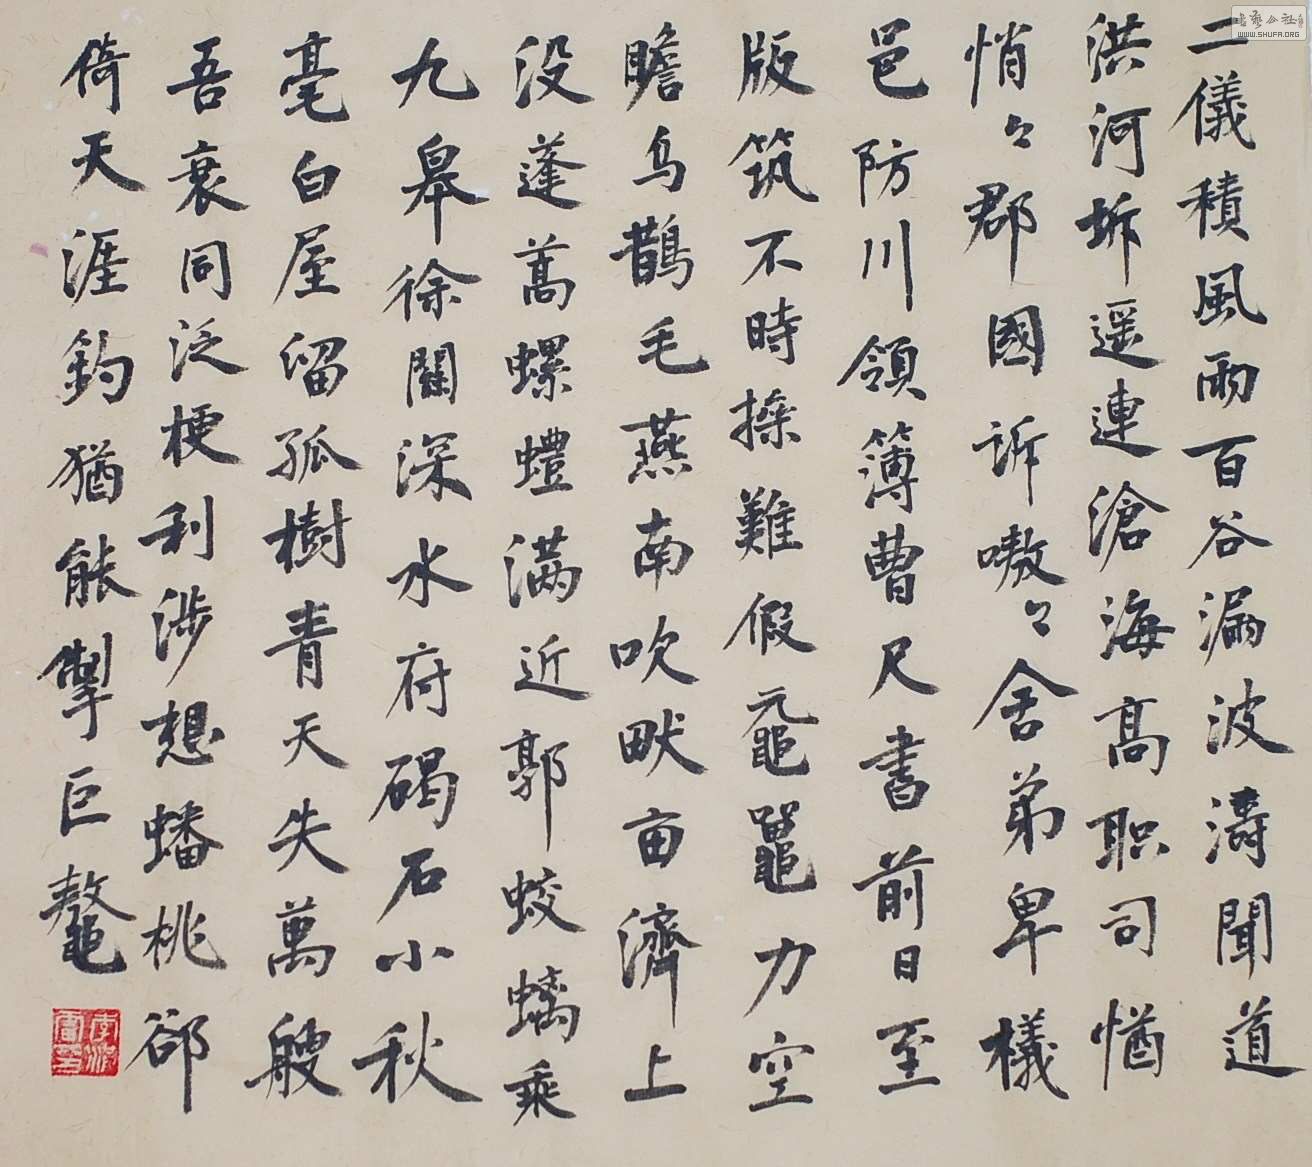 二儀積風雨百谷漏波濤聞道
洪河坼遥連滄海高职司
悄々郡國訴嗷々舍弟卑
邑防川領簿曹尺書前日至
版筑不時操難假黿鼉力空
瞻烏鵲毛燕南吹畎亩濟上
没蓬蒿螺滿近郭蛟螭乘
九皋徐關深水府碣石小秋
毫白屋留孤樹青天失萬艘
吾衰同泛梗利涉想蟠桃郤
倚天涯釣猶能掣巨鼇
书艺公社
WWW.SHUFA.ORG